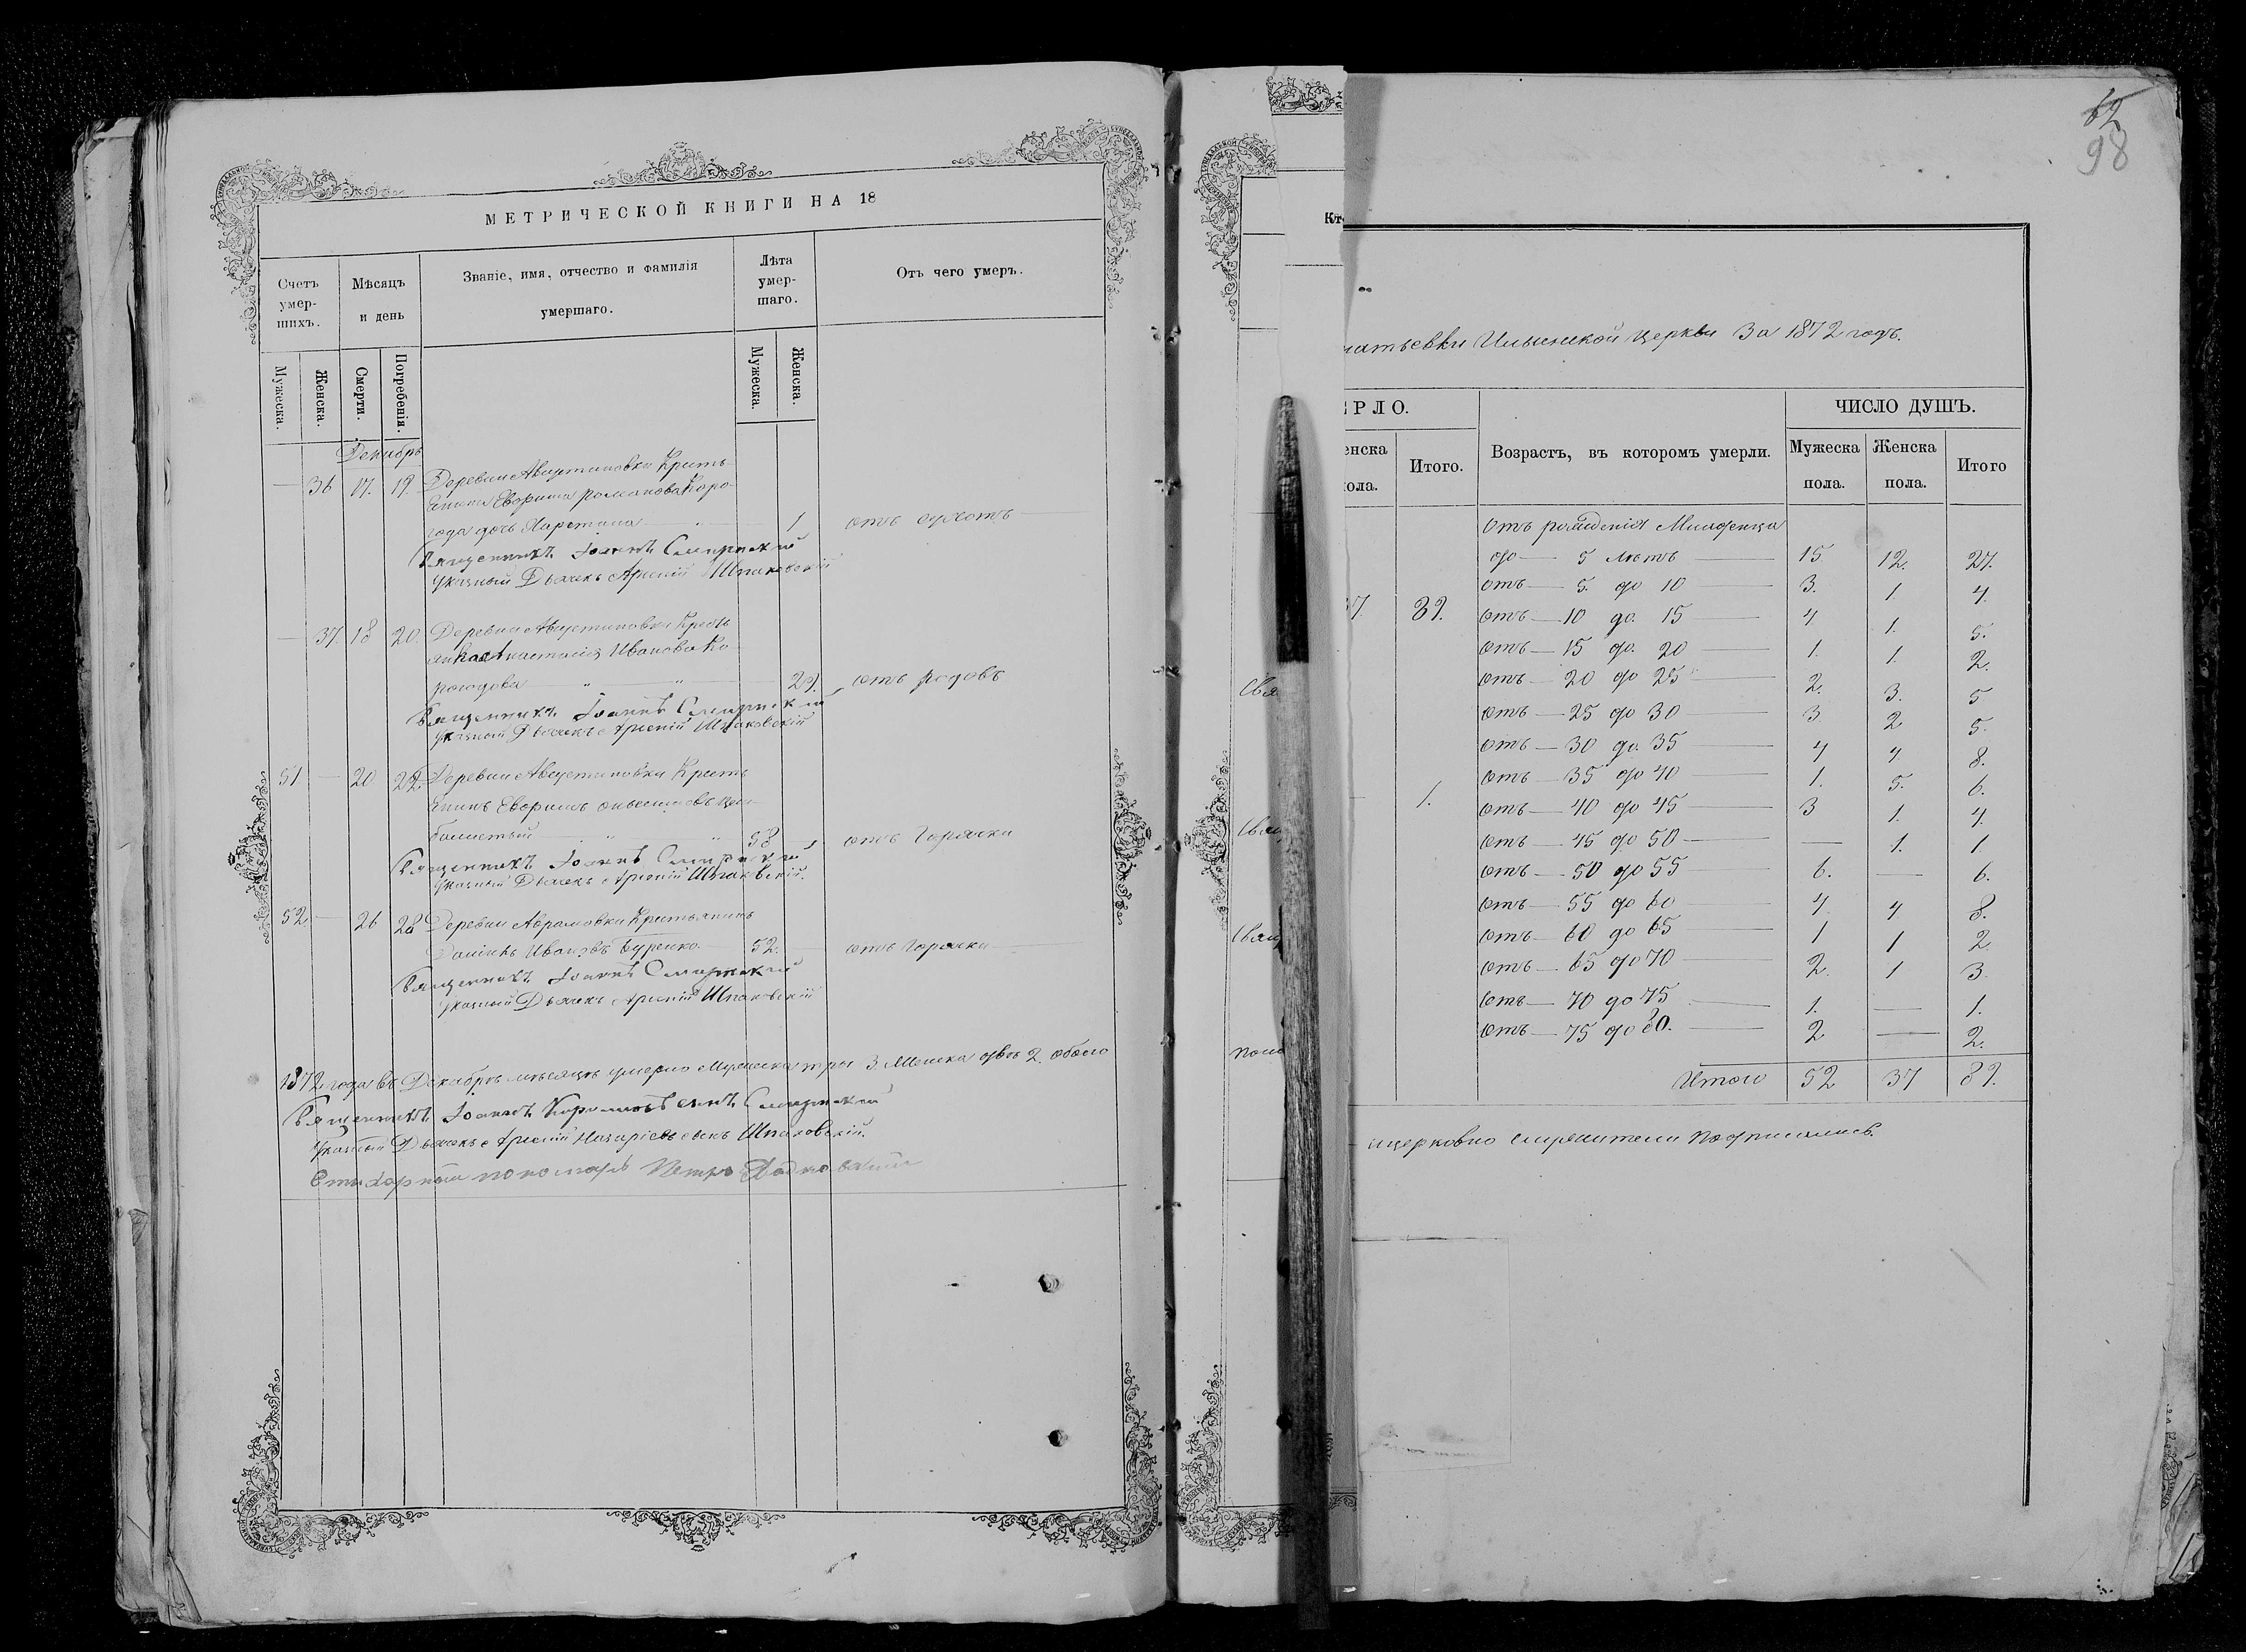 МЕТРИЧЕСКОЙ КНИГИ НА 18
Счетъ умер-шихъ.
Мѣсяцъ и день
Званіе, имя, отчество и фамилія умершаго.
Лѣта умер-шаго.
Отъ чего умеръ.
Мужеска.
Женска.
Смерти.
Погребенія.
Мужеска.
Женска.
Декабрь
— 36 17. 19. Деревни Августиновки Кресть-
янина Романова Коро-
года дочь 1 отъ сухотъ
Священникъ Іоаннъ
Указный Дьячекъ Арсеній Шпаковскій
— 37. 18 20. Деревни Августиновки Кресть
янка Анастасія Иванова Ко-
рогодова 29. отъ родовъ
Священникъ Іоаннъ
Указный Дьячекъ Арсеній Шпаковскій
51 — 20 22. Деревни Августиновки Кресть
янинъ
58 отъ Горячки
Священникъ Іоаннъ
Указный Дьячекъ Арсеній Шпаковскій.
52 — 26 28 Деревни Аврамовки Крестьянинъ
Ивановъ Буренко 52. отъ Горячки
Священникъ Іоаннъ
Указный Дьячекъ Арсеній Шпаковскій
1872 года въ Декабрѣ мѣсяцѣ умерло Мужеска три 3. Женска двѣ 2. обоего
Священникъ Іоаннъ сынъ
Указный Дьячекъ Арсеній Назаріевъ сынъ Шпаковскій.
Стихарный пономарь Петръ
Кт
62
98
натьевки Ильинской Церкви За 1872 годъ.
ЕРЛО.
енска пола.
Итого.
Возрастъ, въ которомъ умерли.
ЧИСЛО ДУШЪ.
Мужеска пола.
Женска пола.
Итого
Отъ рожденія Младенца
до — 5 лѣтъ 15 12. 27.
отъ — 5. до 10 3. 1 4.
37. 89. отъ — 10 до. 15 4 1. 5.
отъ — 15 до. 20 1. 1. 2.
отъ — 20 до 25 2. 3. 5
отъ — 25 до 30 3 2 5.
отъ — 30 до. 35 4 4 8.
отъ — 35 до 40 1. 5. 6.
1. отъ — 40 до 45 3 1. 4.
отъ — 45 до 50 — 1. 1
отъ — 50 до 55 6. — 6.
отъ — 55 до 60 4 4 8.
отъ — 60 до 65 1 1 2
отъ — 65 до 70 2. 1 3.
отъ — 70 до 75 1. — 1.
отъ — 75 до 80. 2 — 2.
Итого 52 37 89.
церковно служители подписались.